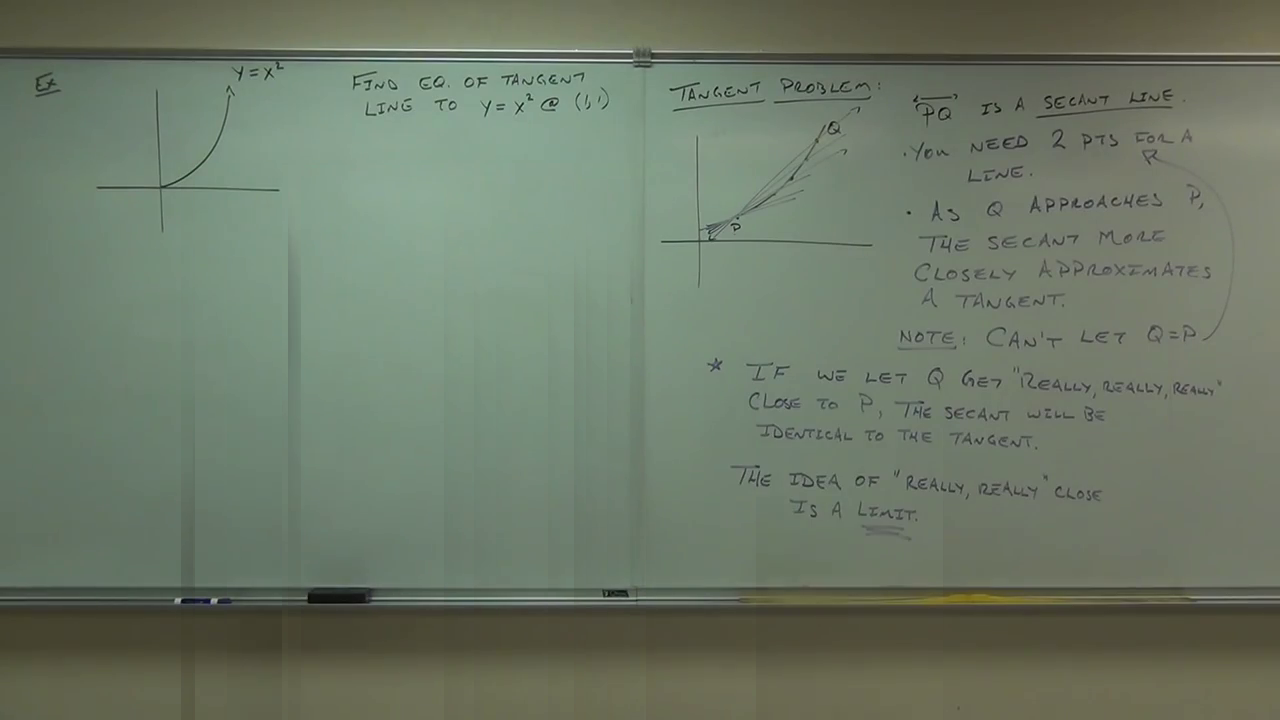 Ex
Y = X²
FIND EQ. OF TANGENT
LINE TO Y = X² @ (1,1)
TANGENT PROBLEM:
Q
P
PQ IS A SECANT LINE.
• YOU NEED 2 PTS FOR A
LINE.
• AS Q APPROACHES P,
THE SECANT MORE
CLOSELY APPROXIMATES
A TANGENT.
NOTE: CAN'T LET Q=P
* IF WE LET Q GET "REALLY, REALLY, REALLY"
CLOSE TO P, THE SECANT WILL BE
IDENTICAL TO THE TANGENT.
THE IDEA OF "REALLY, REALLY" CLOSE
IS A LIMIT.